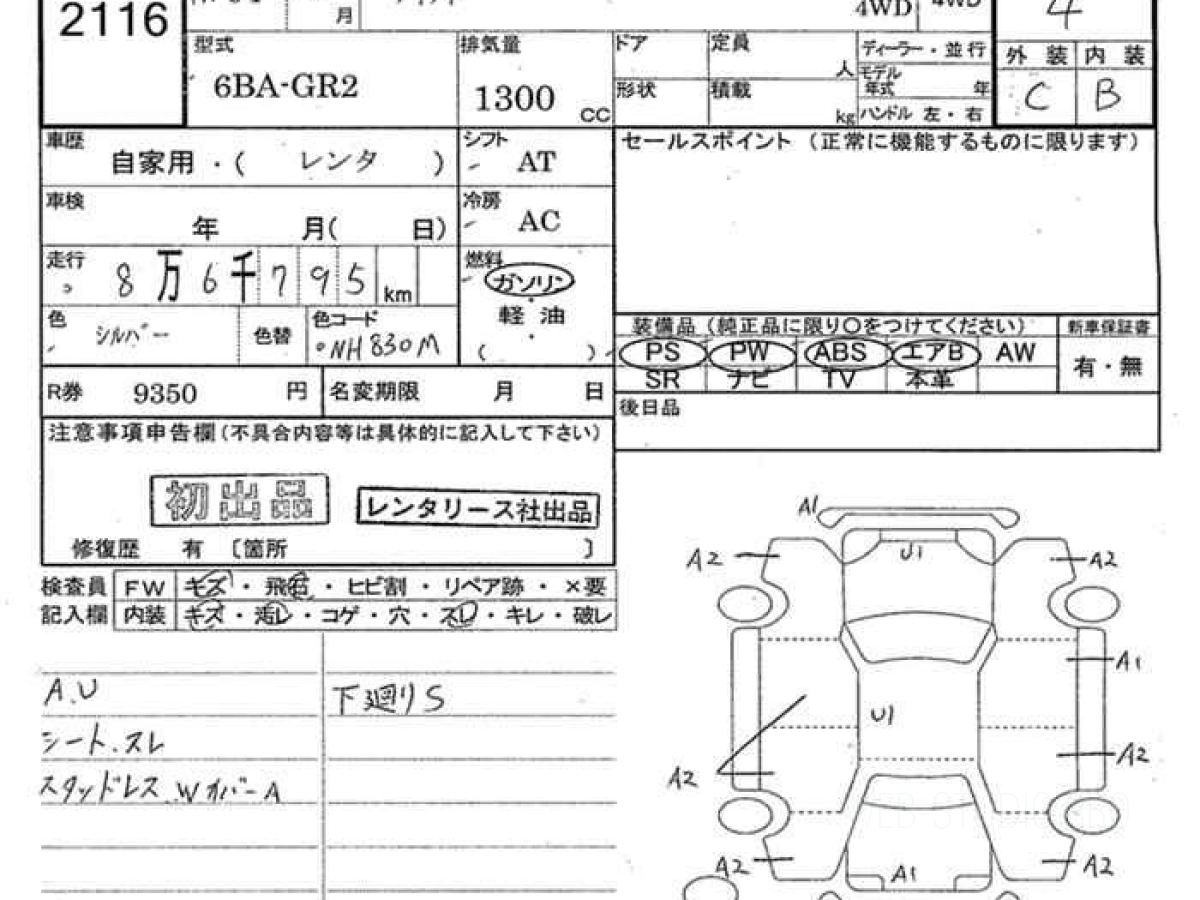 2116
月
4WD
4WD
4
型式
6BA-GR2
排気量
1300 CC
ドア
定員
人
形状
積載
kg
ディーラー・並行
モデル年式 年
ハンドル 左・右
外装 内装
C B
車歴
自家用・( レンタ )
シフト
AT
セールスポイント (正常に機能するものに限ります)
車検
年 月( 日)
冷房
AC
走行
8万6千795km
燃料
ガソリン
軽油
( )
色
シルバー
色替
色コード
NH830M
装備品 (純正品に限り○をつけてください)
新車保証書
PS PW ABS エアB AW
SR ナビ TV 本革
有・無
R券 9350 円
名変期限 月 日
後日品
注意事項申告欄(不具合内容等は具体的に記入して下さい)
初出品
レンタリース社出品
修復歴 有 〔箇所 〕
検査員 FW キズ・飛石・ヒビ割・リペア跡・×要
記入欄 内装 キズ・汚レ・コゲ・穴・スレ・キレ・破レ
A.U
下廻りS
シート.スレ
スタッドレス Wオバー A
A1
A2
U1
A2
A1
U1
A2
A2
A2
A1
A2